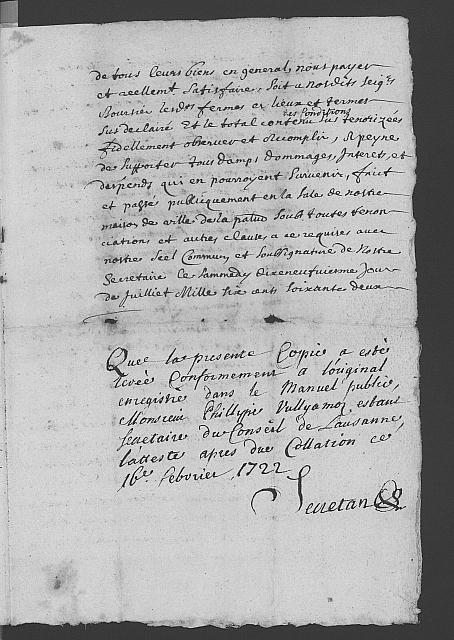 de tous leurs biens en general, nous payer
et reellemt satisfaire, soit a nosdits seigrs
Boursier lesds fermes es lieux et termes
sus declairé et le total contenu des conditions sus tenorizées
fidellement observer et accomplir, A peyne
de supporter tous damps, dommages, Interets, et
despends qui en pourroyent survenir, faict
et passé publiquement en la sale de nostre
maison de ville de la palud soubs toutes renon-
ciations et autres clauses a ce requises avec
nostre seel Commun, et soubsignature de nostre
Secretaire ce sammedy dixneufvieme Jour
de Juilliet Mille six cents soixante deux
Que la presente Copie a esté
levée Conformement a l'original
enregistré dans le Manuel public,
Monsieur Phillippe Vullyamoz estant
secretaire du Conseil de Lausanne,
l'atteste apres due Collation ce
16e febvrier 1722
Secretan